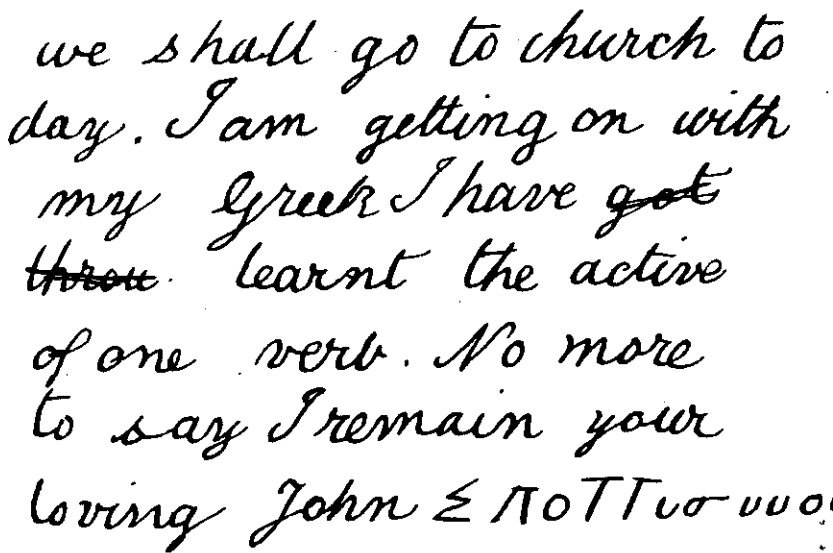 we shall go to church to
day. I am getting on with
my Greek I have got
throu learnt the active
of one verb. No more
to say I remain your
loving John ΣποΤΤισυυο